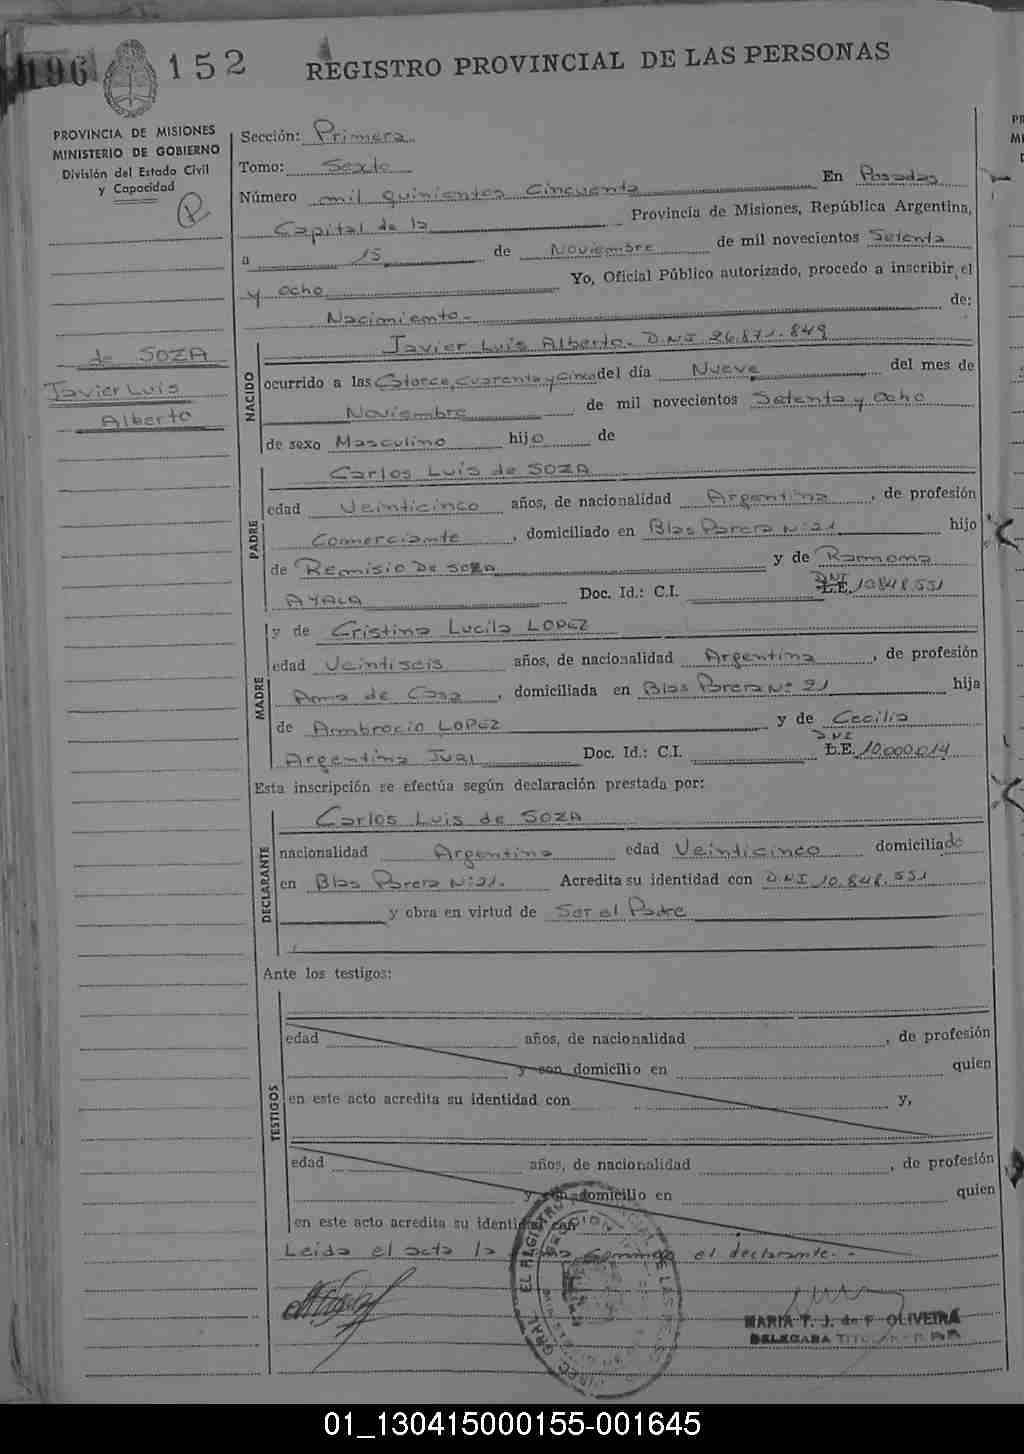 196 152 REGISTRO PROVINCIAL DE LAS PERSONAS
PROVINCIA DE MISIONES
MINISTERIO DE GOBIERNO
División del Estado Civil
y Capacidad
de SOZA
Javier Luis
Alberto
Sección: Primera
Tomo: Sexto
Número mil quinientos cincuenta En Posadas
Capital de la Provincia de Misiones, República Argentina,
a 15 de Noviembre de mil novecientos Setenta
y ocho Yo, Oficial Público autorizado, procedo a inscribir el
Nacimiento.- de:
NACIDO
Javier Luis Alberto- D.N.I 26.871.849
ocurrido a las Catorce, cuarenta y cinco del día Nueve del mes de
Noviembre de mil novecientos Setenta y ocho
de sexo Masculino hijo de
PADRE
Carlos Luis de SOZA
edad Veinticinco años, de nacionalidad Argentina, de profesión
Comerciante, domiciliado en Blas Parera N:21 hijo
de Remisio De SOZA y de Ramona
AYALA Doc. Id.: C.I. D.N.I L.E. 10.848.551
MADRE
y de Cristina Lucila LOPEZ
edad Veintiseis años, de nacionalidad Argentina, de profesión
Ama de Casa, domiciliada en Blas Parera Nº 21 hija
de Ambrocio LOPEZ y de Cecilia
Argentina Doc. Id.: C.I. D.N.I L.E. 10.000.014
Esta inscripción se efectúa según declaración prestada por:
DECLARANTE
Carlos Luis de SOZA
nacionalidad Argentina edad Veinticinco domiciliado
en Blas Parera N:21. Acredita su identidad con D.N.I 10.848.551
y obra en virtud de Ser el Padre
Ante los testigos:
TESTIGOS
edad años, de nacionalidad , de profesión
y con domicilio en quien
en este acto acredita su identidad con y,
edad años, de nacionalidad , de profesión
y con domicilio en quien
en este acto acredita su identidad con
Leida el acta la el declarante.-
MARIA T. J. de F. OLIVEIRA
DELEGADA TITULAR
01_130415000155-001645